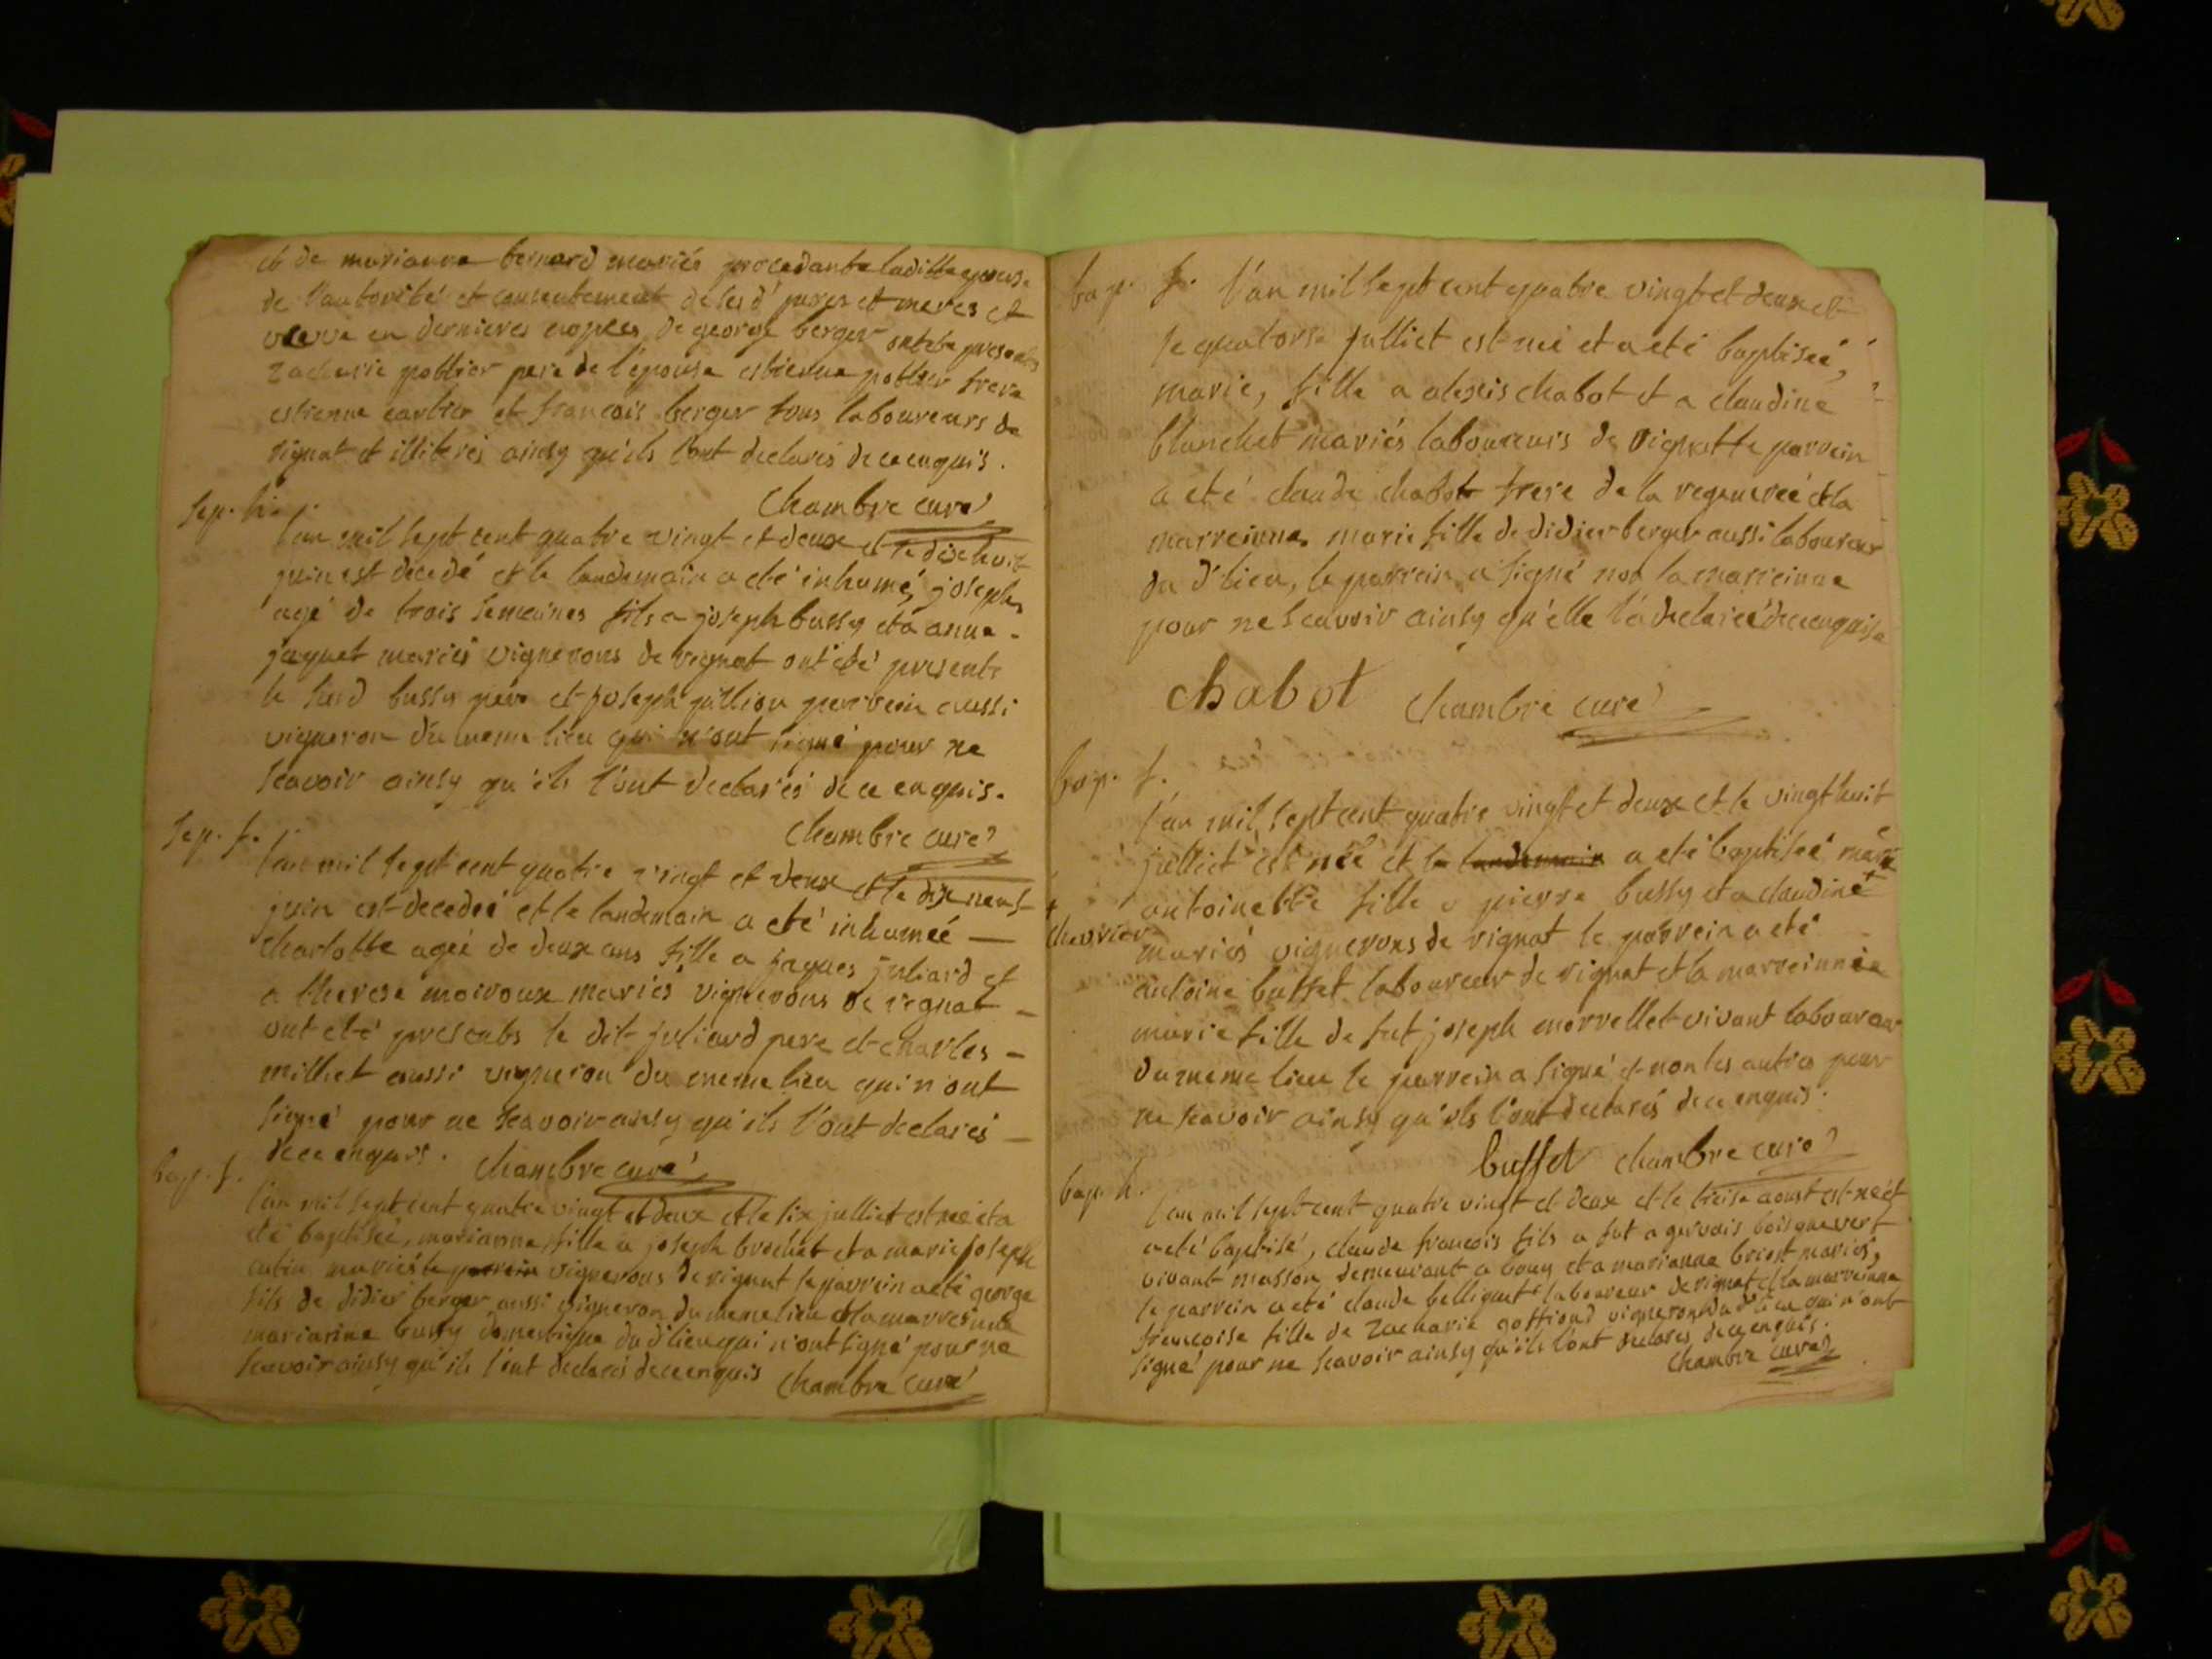 et de marianne bernard mariés procedante laditte epouse
de l'autorité et consentement de les d' peres et meres et
veuve en dernieres nopces de george berger ont ete presents
zacharie pottier pere de l'épouse estienne pottier frere
estienne carlier et françois berger tous laboureurs de
rignat et illiterés ainsy qu'ils l'ont declarés de ce enquis.
Chambre curé
sep. h.
l'an mil sept cent quatre vingt et deux et le dix huit
juin est décedé et le landemain a eté inhumé, joseph
agé de trois semaines fils a joseph bussy et a anne
jaquet mariés vignerons de rignat ont été presents
le susd bussy pere et joseph jullion parrein aussi
vigneron du meme lieu qui n'ont signé pour ne
scavoir ainsy qu'ils l'ont declarés de ce enquis.
Chambre curé
sep. f.
l'an mil sept cent quatre vingt et deux et le dix neuf
juin est decedeé et le landemain a eté inhumeé —
charlotte ageé de deux ans fille a jaques juliard et
a therese moiroux mariés vignerons de rignat —
ont eté presents le dit juliard pere et charles —
milliet aussi vigneron du meme lieu qui n'ont
signé pour ne scavoir ainsy qu'ils l'ont declarés —
de ce enquis. Chambre curé
bap. f.
l'an mil sept cent quatre vingt et deux et le six julliet est neé et a
eté baptiseé, marianne fille a joseph brochet et a marie joseph
mariés le parrein vignerons de rignat le parrein a eté george
fils de didier berger aussi vigneron du meme lieu et la marreinne
marianne bussy domestique du d' lieu qui n'ont signé pour ne
scavoir ainsy qu'ils l'ont declarés de ce enquis Chambre curé
bap. f. l'an mil sept cent quatre vingt et deux et
le quatorse julliet est neé et a eté baptiseé,
marie, fille a alexis chabot et a claudine
blanchet mariés laboureurs de vignette parrein
a eté claude chabot frere de la regenereé et la
marreinne marie fille de didier berger aussi laboureur
du d' lieu, le parrein a signé non la marreinne
pour ne scavoir ainsy qu'elle l'a declareé de ce enquise
chabot Chambre curé
bap. f.
l'an mil sept cent quatre vingt et deux et le vingt huit
julliet est neé et le landemain a eté baptiseé marie
antoinette fille a pierre bussy et a claudine +
+ chevrier
mariés vignerons de rignat le parrein a eté
antoine buffet laboureur de rignat et la marreinne
marie fille de fut joseph morrellet vivant laboureur
du meme lieu le parrein a signé et non les autres pour
ne scavoir ainsy qu'ils l'ont declarés de ce enquis.
buffet chambre curé
bap. h.
l'an mil sept cent quatre vingt et deux et le treise aoust est né et
a eté baptisé, claude françois fils a fut a gervais boisquevert
vivant masson demeurant a bouy et a marianne briost mariés,
le parrein a eté claude belliquet laboureur de rignat et la marreinne
françoise fille de zacharie goffiond vigneron du d' lieu qui n'ont
signé pour ne scavoir ainsy qu'ils l'ont declarés de ce enquis.
Chambre curé